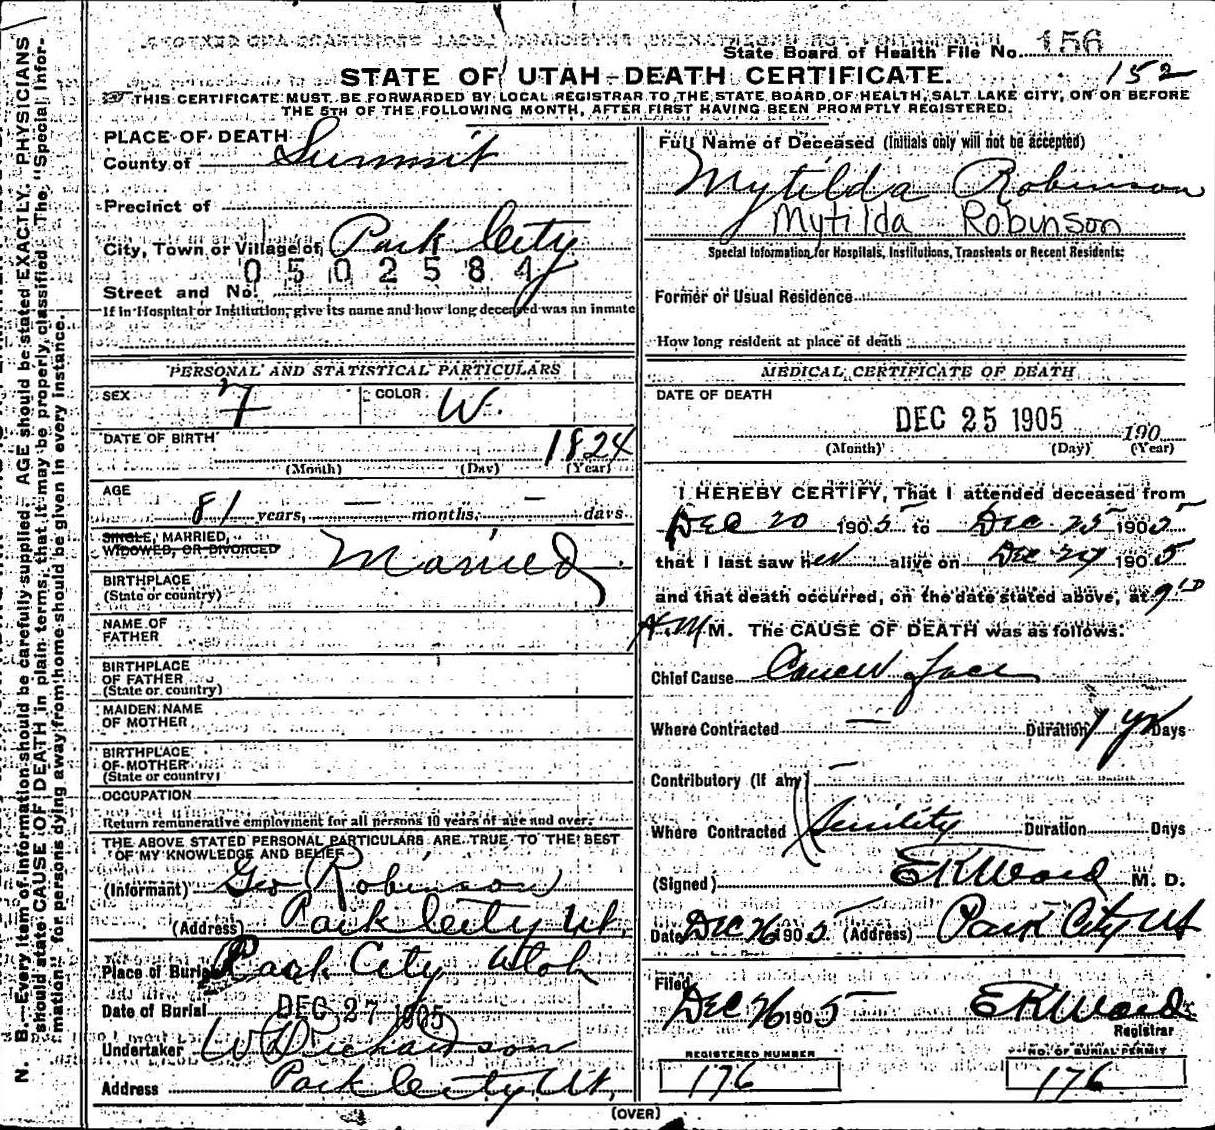 State Board of Health File No. 156
152
STATE OF UTAH—DEATH CERTIFICATE.
THIS CERTIFICATE MUST BE FORWARDED BY LOCAL REGISTRAR TO THE STATE BOARD OF HEALTH, SALT LAKE CITY, ON OR BEFORE
THE 5TH OF THE FOLLOWING MONTH, AFTER FIRST HAVING BEEN PROMPTLY REGISTERED.
PLACE OF DEATH
County of Summit
Precinct of
City, Town or Village of Park City
0502584
Street and No.
If in Hospital or Institution, give its name and how long deceased was an inmate
PERSONAL AND STATISTICAL PARTICULARS
SEX F COLOR W.
DATE OF BIRTH 1824
(Month) (Day) (Year)
AGE
81 years, — months, — days
SINGLE, MARRIED,
WIDOWED, OR DIVORCED Married
BIRTHPLACE
(State or country)
NAME OF
FATHER
BIRTHPLACE
OF FATHER
(State or country)
MAIDEN NAME
OF MOTHER
BIRTHPLACE
OF MOTHER
(State or country)
OCCUPATION
Return remunerative employment for all persons 10 years of age and over.
THE ABOVE STATED PERSONAL PARTICULARS ARE TRUE TO THE BEST
OF MY KNOWLEDGE AND BELIEF
(Informant) Geo Robinson
(Address) Park City Ut.
Place of Burial Park City Utah
Date of Burial DEC 27 1905
Undertaker W Richardson
Address Park City Ut.
Full Name of Deceased (Initials only will not be accepted)
Mytilda Robinson
Mytilda Robinson
Special Information for Hospitals, Institutions, Transients or Recent Residents:
Former or Usual Residence
How long resident at place of death
MEDICAL CERTIFICATE OF DEATH
DATE OF DEATH
DEC 25 1905 190
(Month) (Day) (Year)
I HEREBY CERTIFY, That I attended deceased from
Dec 20 1905 to Dec 25 1905
that I last saw her alive on Dec 24 1905
and that death occurred, on the date stated above, at 9
A.M. M. The CAUSE OF DEATH was as follows:
Chief Cause Cancer face
Where Contracted — Duration 1 yr Days
Contributory (If any) —
Where Contracted Senility Duration Days
(Signed) E K Ward M. D.
Date Dec 26 1905 (Address) Park City Ut
Filed
Dec 26 1905 E K Ward
Registrar
REGISTERED NUMBER
176
NO. OF BURIAL PERMIT
176
(OVER)
N. B.—Every item of information should be carefully supplied. AGE should be stated EXACTLY. PHYSICIANS
should state CAUSE OF DEATH in plain terms, that it may be properly classified. The "Special Infor-
mation" for persons dying away from home should be given in every instance.